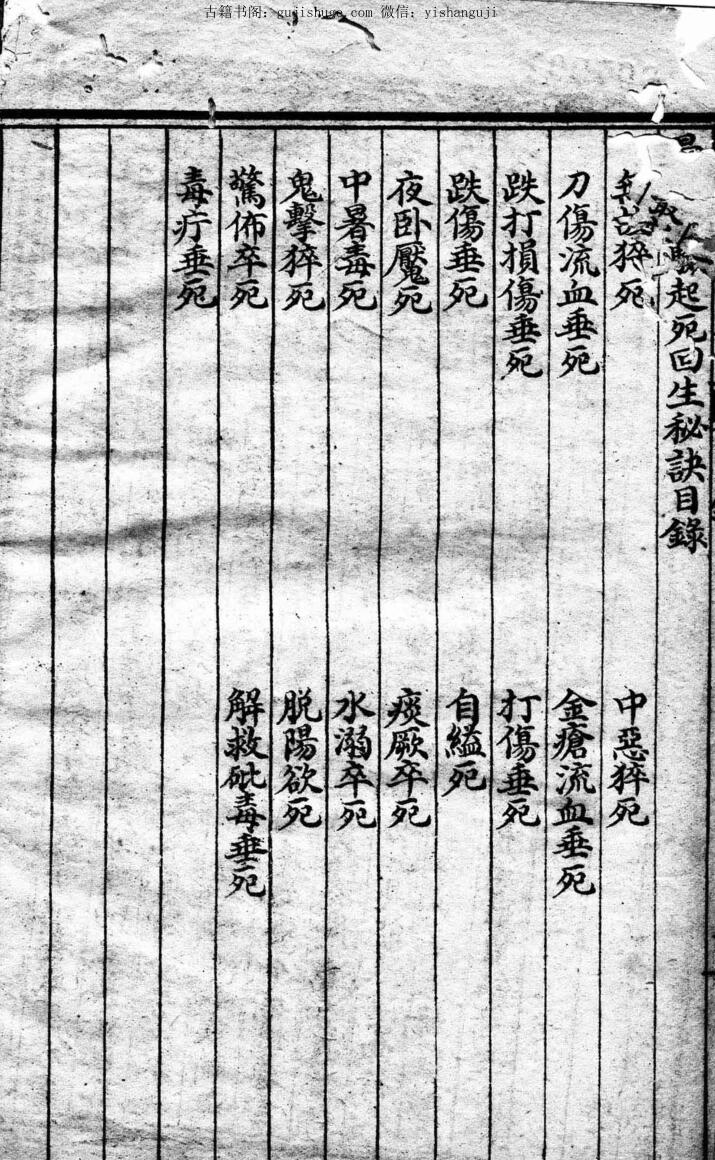 古籍书阁：gujishuge.com 微信：yishanguji
起死回生秘訣目錄
猝死 中惡猝死
刀傷流血垂死 金瘡流血垂死
跌打損傷垂死 打傷垂死
跌傷垂死 自縊死
夜卧魘死 痰厥卒死
中暑毒死 水溺卒死
鬼擊猝死 脱陽欲死
驚佈卒死 解救砒毒垂死
毒疔垂死